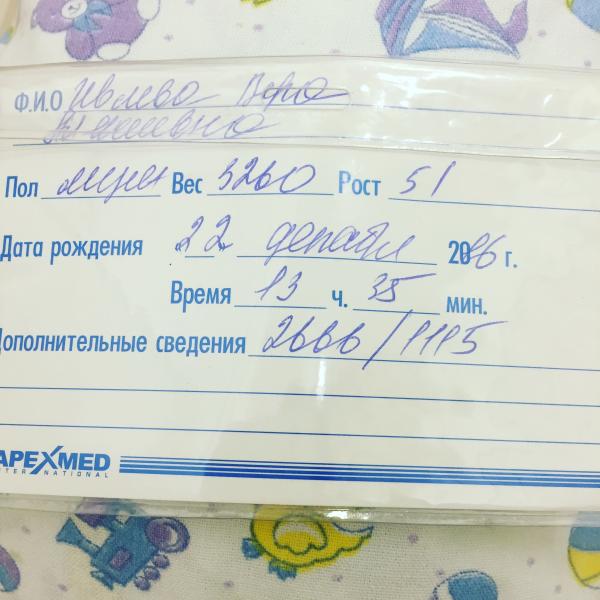 Ф.И.О Ивлева Вера
Пол муж Вес 3260 Рост 51
Дата рождения „22 декабря 2016 г.
Время 13 ч. 35 мин.
Дополнительные сведения 2666/1115
APEXMED
INTERNATIONAL